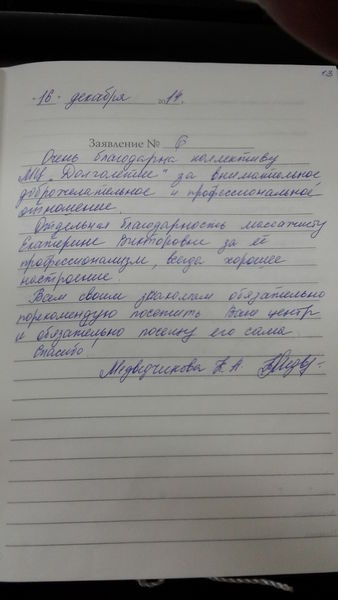 13
"16" декабря 2014.
Заявление № 6
Очень благодарна коллективу
МЦ "Долголетие" за внимательное
доброжелательное и профессиональное
отношение.
Отдельная благодарность массажисту
Екатерине Викторовне за её
профессионализм, всегда хорошее
настроение.
Всем своим знакомым обязательно
порекомендую посетить Ваш центр
и обязательно посещу его сама.
Спасибо!
Медведчикова Е. А.